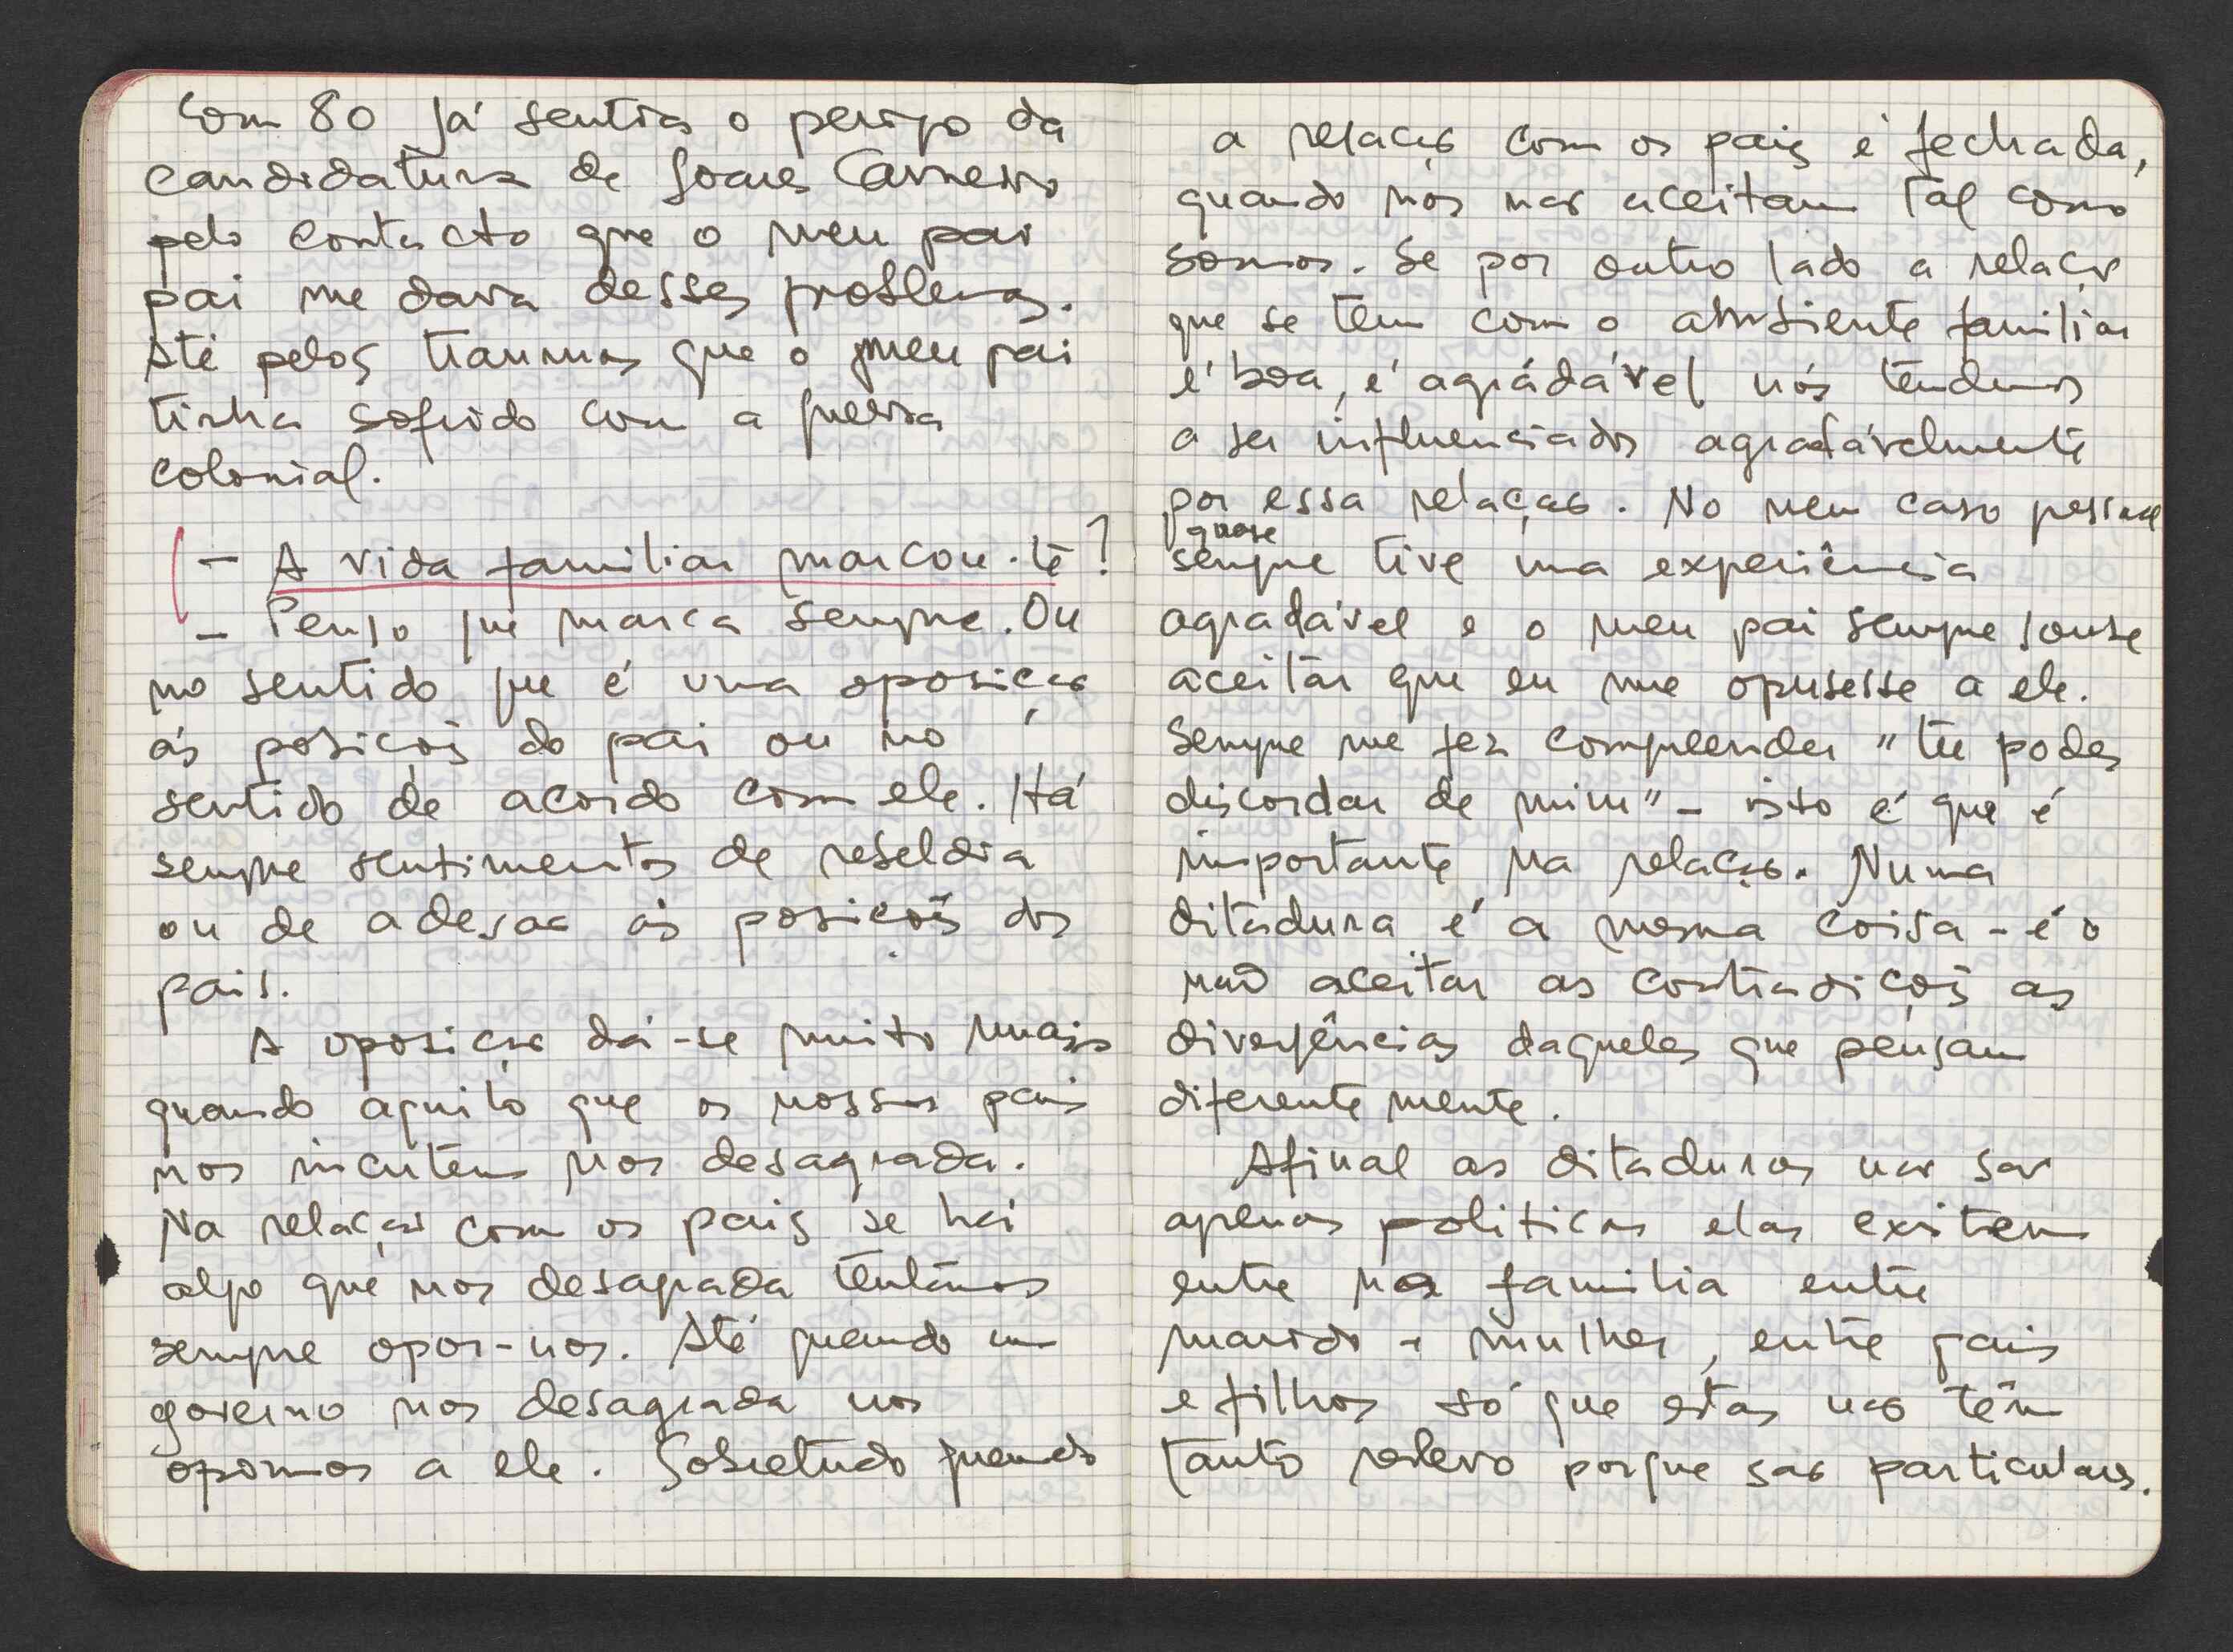 Com 80 já sentia o perigo da
candidatura de Soares Carneiro
pelo contacto que o meu pai
pai me dava desses problemas.
Até pelos traumas que o meu pai
tinha sofrido com a guerra
colonial.
- A vida familiar marcou-te?
- Penso que marca sempre. Ou
no sentido que é uma oposição
ás posições do pai ou no
sentido de acordo com ele. Há
sempre sentimentos de rebeldia
ou de adesão ás posições dos
pais.
A oposição dá-se muito mais
quando aquilo que os nossos pais
nos incutem nos desagrada.
Na relação com os pais se há
algo que nos desagrada tentamos
sempre opor-nos. Até quando um
governo nos desagrada nos
opomos a ele. Sobretudo quando
a relação com os pais é fechada,
quando nos não aceitam tal como
somos. Se por outro lado a relação
que se tem com o ambiente familiar
é boa, é agrádável nós tendemos
a ser influenciados agradávelmente
por essa relação. No meu caso pessoal
quase
sempre tive uma experiência
agradável e o meu pai sempre soube
aceitar que eu me opusesse a ele.
Sempre me fez compreender "tu podes
discordar de mim" - isto é que é
importante na relação. Numa
ditadura é a mesma coisa - é o
não aceitar as contradições as
divergências daqueles que pensam
diferentemente.
Afinal as ditaduras não são
apenas politicas elas existem
entre na familia entre
marido e mulher, entre pais
e filhos só que estas não têm
tanto relevo porque são particulares.